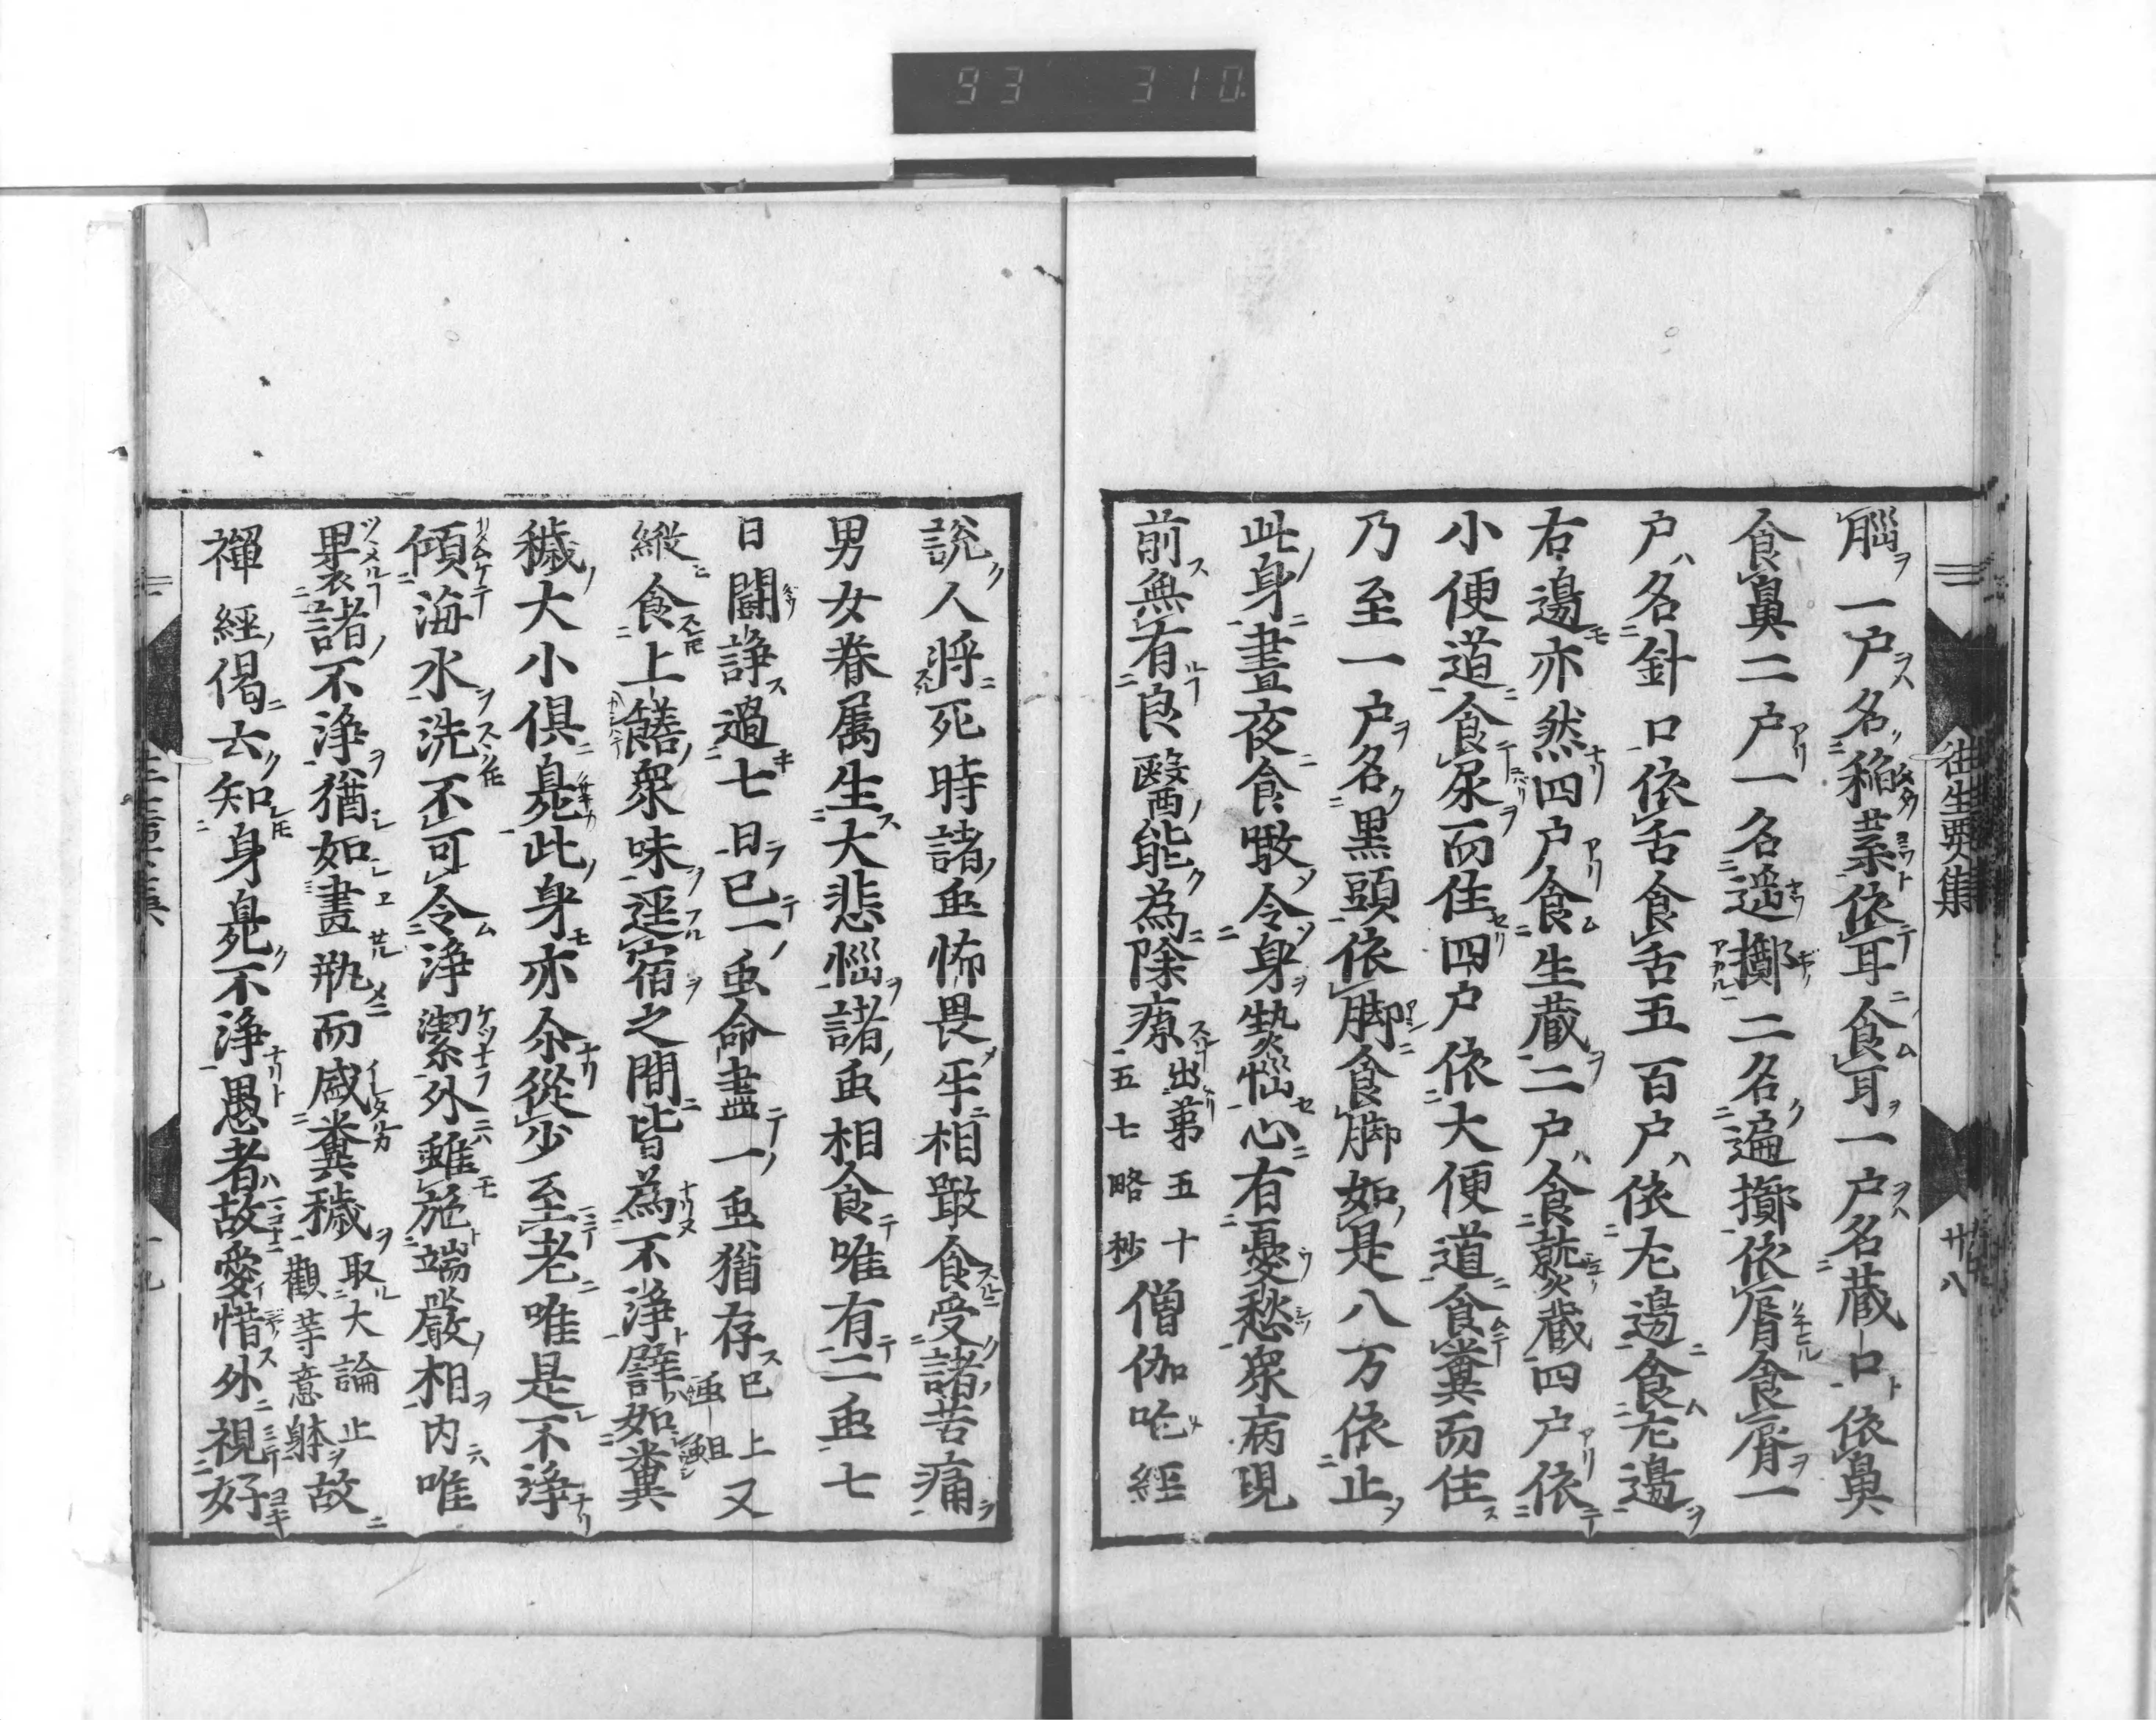 93 310
往生要集
廿八
腦一戸名稲葉依耳食耳一戸名蔵口依鼻
食鼻二戸一名遥擲二名遍擲依脣食脣一
戸名針口依舌食舌五百戸依左邊食左邊
右邊亦然四戸食生蔵二戸食熟蔵四戸依
小便道食尿而住四戸依大便道食糞而住
乃至一戸名黒頭依脚食脚如是八万依止
此身晝夜食噉令身熱惱心有憂愁衆病現
前無有良醫能為除療出第五十五七略抄僧伽吒經
説人將死時諸虫怖畏牙相噉食受諸苦痛
男女眷属生大悲惱諸虫相食唯有二虫七
日闘諍過七日已一虫命盡一虫猶存已上又
縦食上饍衆味逕宿之間皆為不淨譬如糞
穢大小俱臭此身亦尒從少至老唯是不淨
傾海水洗不可令淨潔外雖施端嚴相内唯
裹諸不淨猶如畫瓶而盛糞穢取大論止觀等意故
禪經偈云知身臭不淨愚者故愛惜外視好